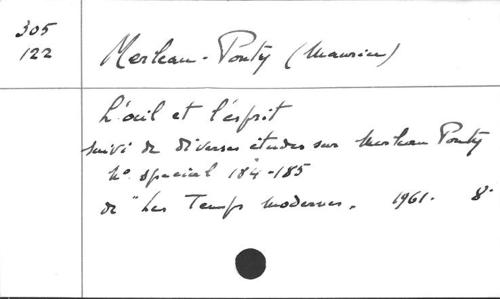 305
122
Merleau-Ponty (Maurice)
L'œil et l'esprit
suivi de diverses études sur Merleau Ponty
N° spécial 184-185
de "Les Temps modernes, 1961. 8°